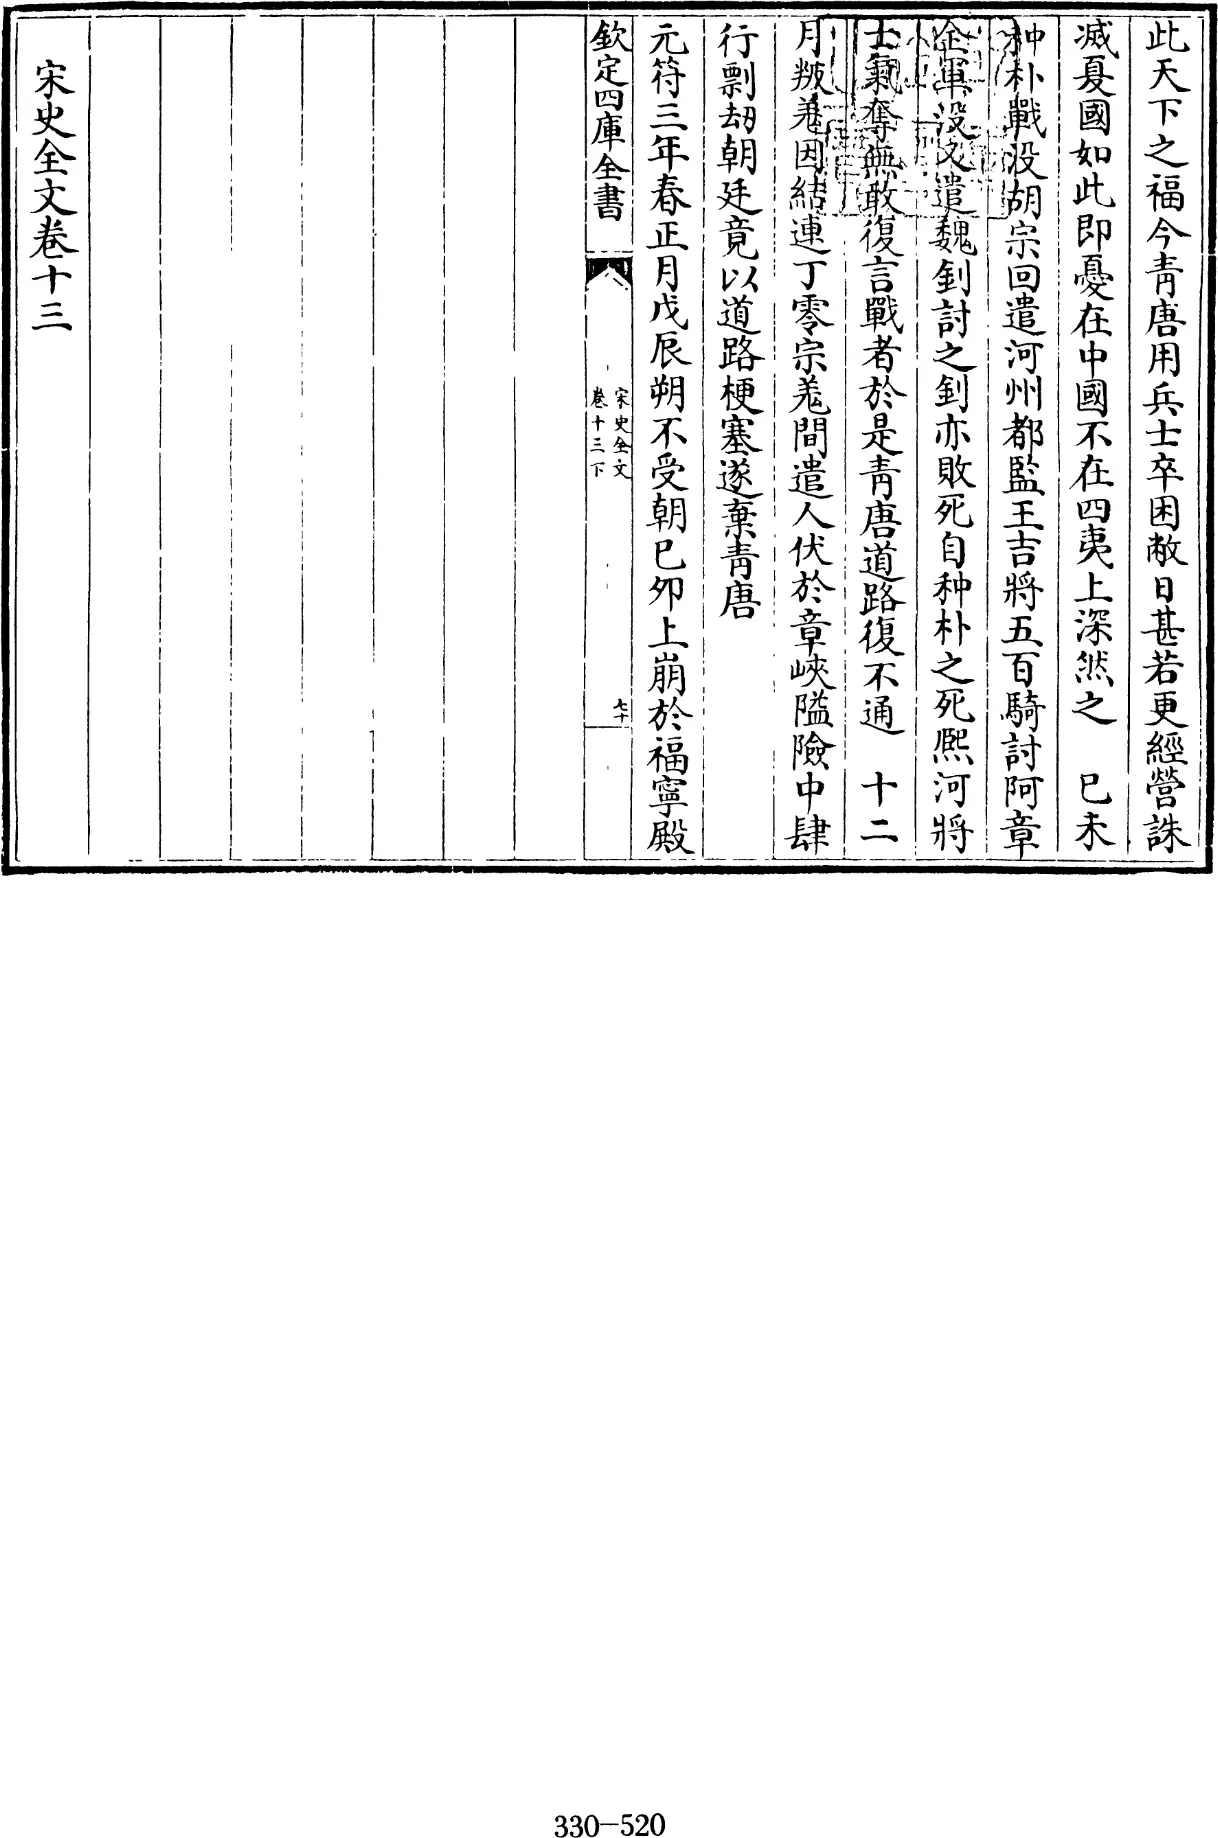 此天下之福今青唐用兵士卒困敝日甚若更經營誅
滅夏國如此即憂在中國不在四夷上深然之　已未
种朴戰没胡宗回遣河州都監王吉將五百騎討阿章
全軍没又遣魏釗討之釗亦敗死自种朴之死熈河將
士氣奪無敢復言戰者於是青唐道路復不通　十二
月叛羗因結連丁零宗羗間遣人伏於章峽隘險中肆
行剽刼朝廷竟以道路梗塞遂棄青唐
元符三年春正月戊辰朔不受朝已夘上崩於福寧殿
欽定四庫全書
宋史全文
卷十三下
七十
宋史全文卷十三
330-520